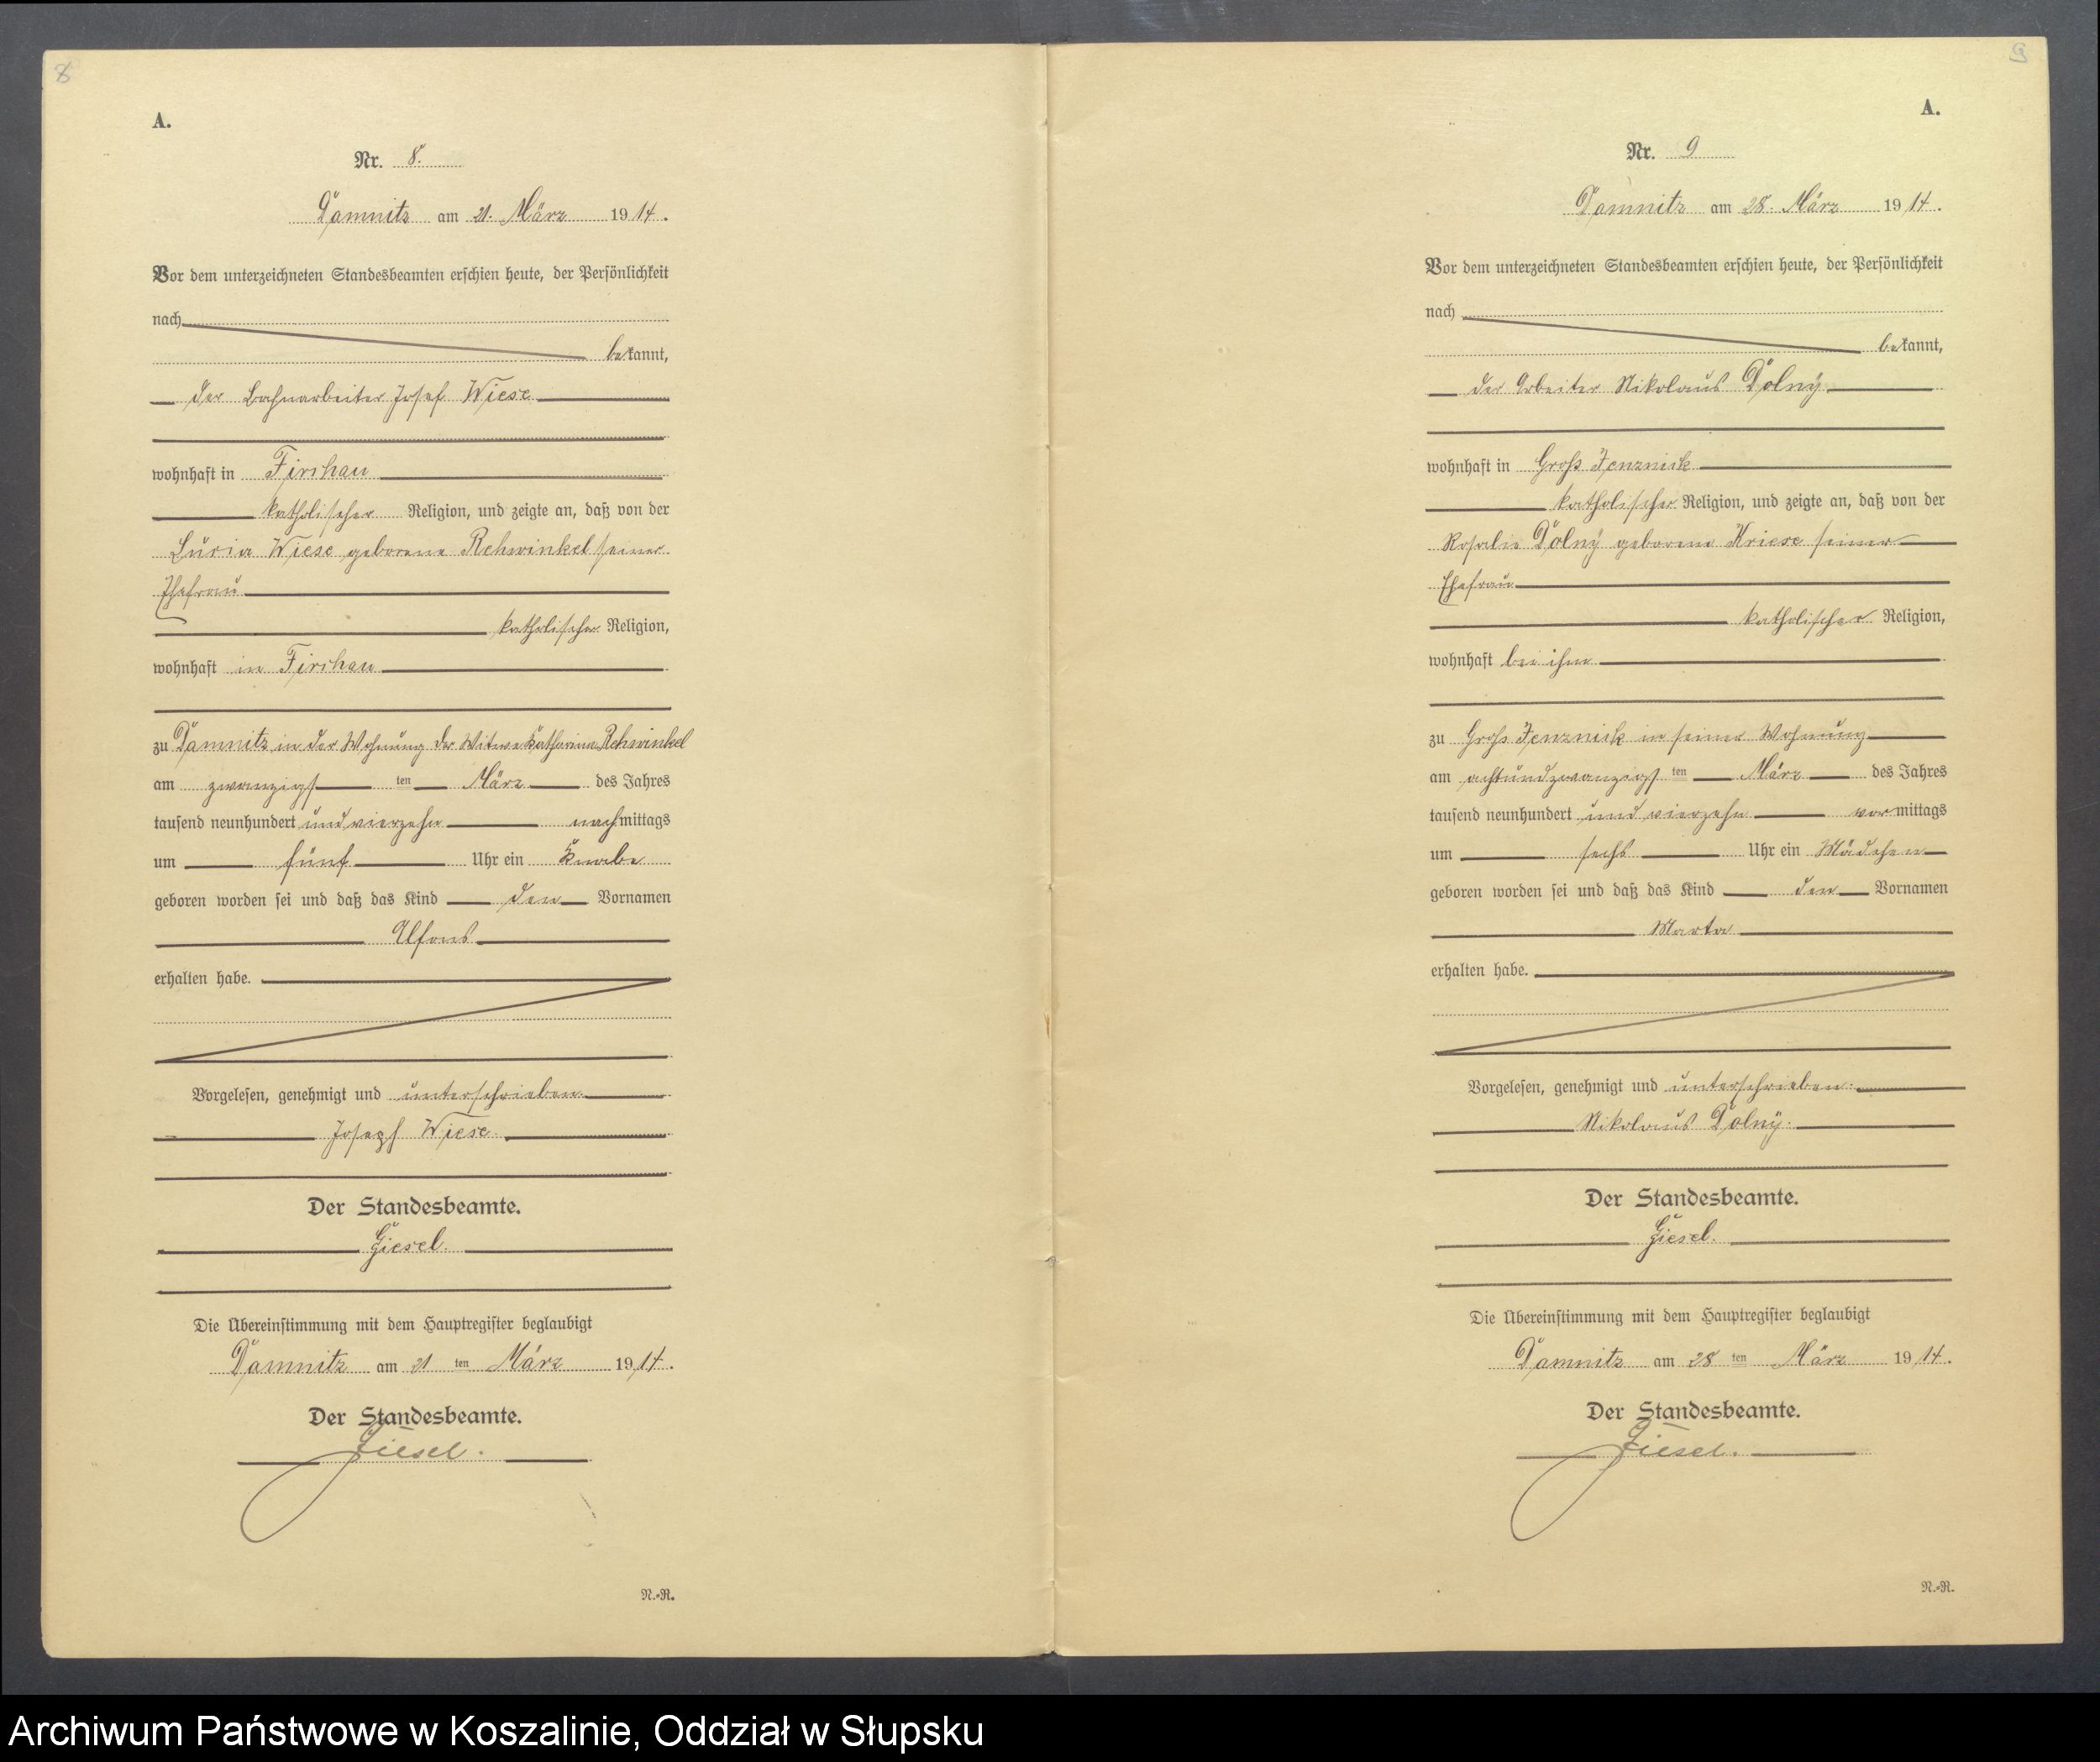 8
A.
Nr. 8.
Damnitz am 21. März 1914.
Vor dem unterzeichneten Standesbeamten erschien heute, der Persönlichkeit
nach
bekannt,
der Bahnarbeiter Josef Wiese
wohnhaft in Firchau
katholischer Religion, und zeigte an, daß von der
Luzia Wiese geborene Rehwinkel seiner
Ehefrau
katholischer Religion,
wohnhaft in Firchau
zu Damnitz in der Wohnung der Witwe Katharina Rehwinkel
am zwanzigsten März des Jahres
tausend neunhundert und vierzehn nachmittags
um fünf Uhr ein Knabe
geboren worden sei und daß das Kind den Vornamen
Alfons
erhalten habe.
Vorgelesen, genehmigt und unterschrieben.
Joseph Wiese.
Der Standesbeamte.
Giesel.
Die Übereinstimmung mit dem Hauptregister beglaubigt
Damnitz am 21 ten März 1914.
Der Standesbeamte.
Giesel.
N.-R.
9
A.
Nr. 9
Damnitz am 28. März 1914.
Vor dem unterzeichneten Standesbeamten erschien heute, der Persönlichkeit
nach
bekannt,
der Arbeiter Nikolaus Dolny
wohnhaft in Groß Jenznick
katholischer Religion, und zeigte an, daß von der
Rosalie Dolny geborene Kriese seiner
Ehefrau
katholischer Religion,
wohnhaft bei ihm
zu Groß Jenznick in seiner Wohnung
am achtundzwanzigsten März des Jahres
tausend neunhundert und vierzehn vormittags
um sechs Uhr ein Mädchen
geboren worden sei und daß das Kind den Vornamen
Marta
erhalten habe.
Vorgelesen, genehmigt und unterschrieben.
Nikolaus Dolny.
Der Standesbeamte.
Giesel.
Die Übereinstimmung mit dem Hauptregister beglaubigt
Damnitz am 28 ten März 1914.
Der Standesbeamte.
Giesel.
N.-R.
Archiwum Państwowe w Koszalinie, Oddział w Słupsku